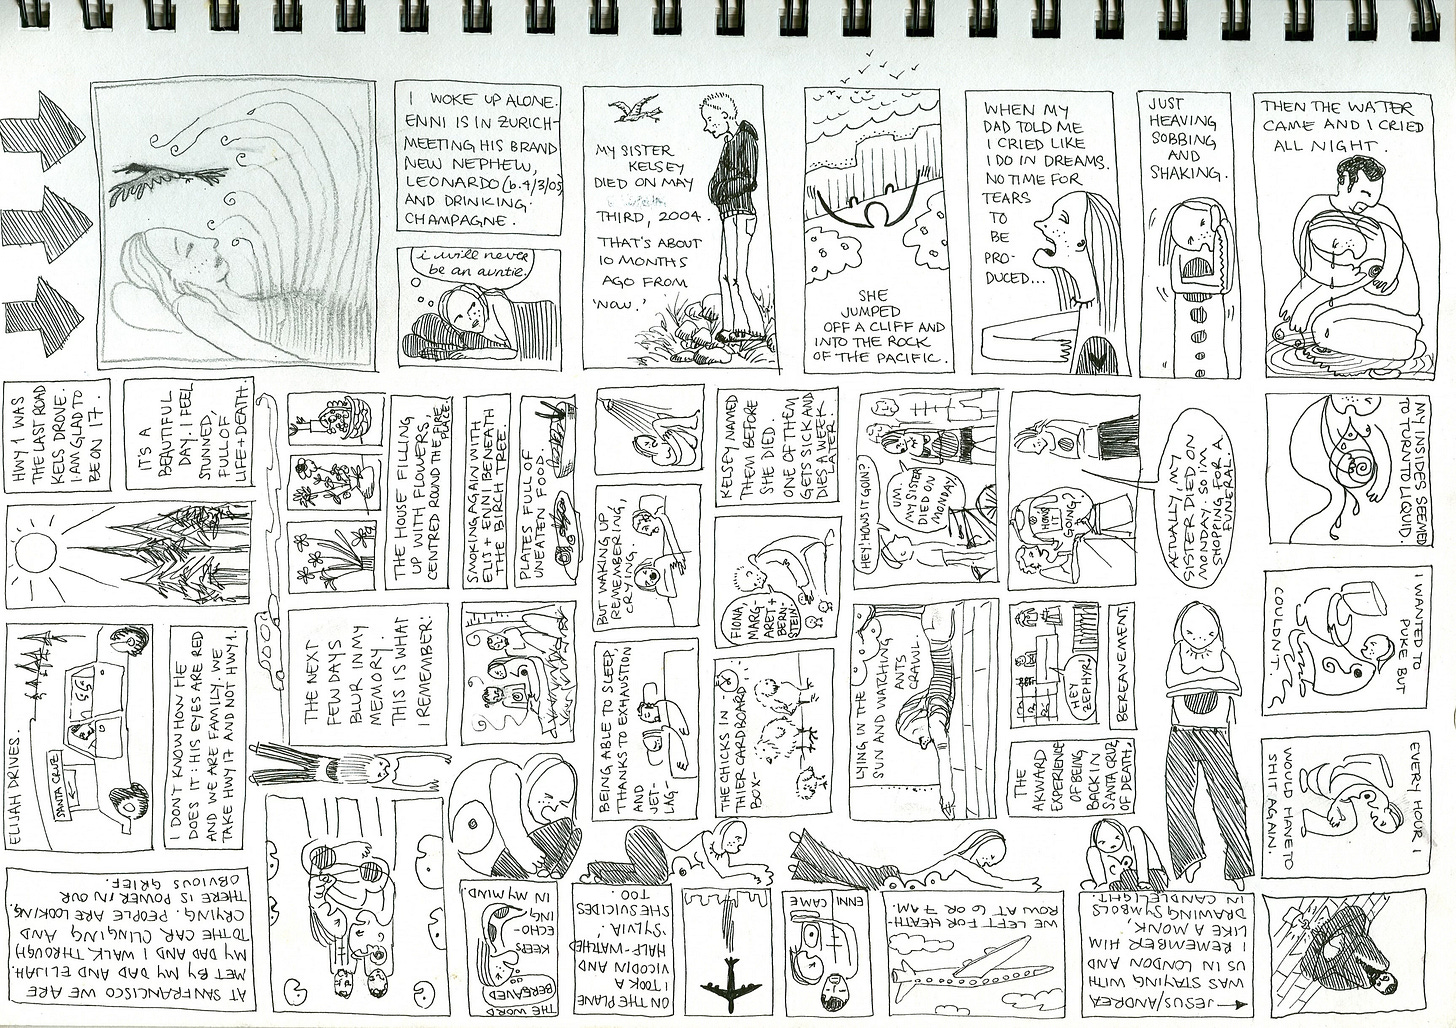 I WOKE UP ALONE.
ENNI IS IN ZURICH-
MEETING HIS BRAND
NEW NEPHEW,
LEONARDO (b. 4/3/05)
AND DRINKING
CHAMPAGNE.
i will never
be an auntie.
MY SISTER
KELSEY
DIED ON MAY
THIRD, 2004.
THAT'S ABOUT
10 MONTHS
AGO FROM
'NOW.'
SHE
JUMPED
OFF A CLIFF AND
INTO THE ROCK
OF THE PACIFIC.
WHEN MY
DAD TOLD ME
I CRIED LIKE
I DO IN DREAMS.
NO TIME FOR
TEARS
TO
BE
PRO-
DUCED...
JUST
HEAVING
SOBBING
AND
SHAKING.
THEN THE WATER
CAME AND I CRIED
ALL NIGHT.
MY INSIDES SEEMED
TO TURN TO LIQUID.
I WANTED TO
PUKE BUT
COULDN'T.
EVERY HOUR I
WOULD HAVE TO
SHIT AGAIN.
JESUS/ANDREA
WAS STAYING WITH
US IN LONDON AND
I REMEMBER HIM
LIKE A MONK
DRAWING SYMBOLS
IN CANDLELIGHT.
WE LEFT FOR HEATH-
ROW AT 6 OR 7 AM.
ENNI CAME
ON THE PLANE
I TOOK A
VICODIN AND
HALF-WATCHED
'SYLVIA.'
SHE SUICIDES
TOO.
THE WORD
BEREAVED
KEEPS
ECHO-
ING
IN MY MIND.
AT SAN FRANCISCO WE ARE
MET BY MY DAD AND ELIJAH.
MY DAD AND I WALK THROUGH
TO THE CAR, CLINGING AND
CRYING. PEOPLE ARE LOOKING.
THERE IS POWER IN OUR
OBVIOUS GRIEF.
ELIJAH DRIVES.
SANTA CRUZ
I DON'T KNOW HOW HE
DOES IT: HIS EYES ARE RED
AND WE ARE FAMILY. WE
TAKE HWY 17 AND NOT HWY 1.
HWY 1 WAS
THE LAST ROAD
KELS DROVE.
I AM GLAD TO
BE ON 17.
IT'S A
BEAUTIFUL
DAY. I FEEL
STUNNED,
FULL OF
LIFE+DEATH.
THE NEXT
FEW DAYS
BLUR IN MY
MEMORY.
THIS IS WHAT
I REMEMBER:
THE HOUSE FILLING
UP WITH FLOWERS,
CENTRED ROUND THE FIRE
PLACE.
SMOKING AGAIN WITH
ELIS + ENNI BENEATH
THE BIRCH TREE.
PLATES FULL OF
UNEATEN FOOD.
BEING ABLE TO SLEEP,
THANKS TO EXHAUSTION
AND
JET-
LAG-
BUT WAKING UP,
REMEMBERING,
CRYING.
THE CHICKS IN
THIER CARDBOARD
BOX-
FIONA,
MARG-
ARET +
BERN-
STEIN.
KELSEY NAMED
THEM BEFORE
SHE DIED.
ONE OF THEM
GETS SICK AND
DIES A WEEK
LATER.
LYING IN THE
SUN AND WATCHING
ANTS
CRAWL.
HEY HOWS IT GOING?
UM.
MY SISTER
DIED ON
MONDAY.
THE
AKWARD
EXPERIENCE
OF BEING
BACK IN
SANTA CRUZ
OF DEATH,
HEY
ZEPHYR!
BEREAVEMENT.
HOWS
IT
GOING?
ACTUALLY MY
SISTER DIED ON
MONDAY SO IM
SHOPPING FOR A
FUNERAL.